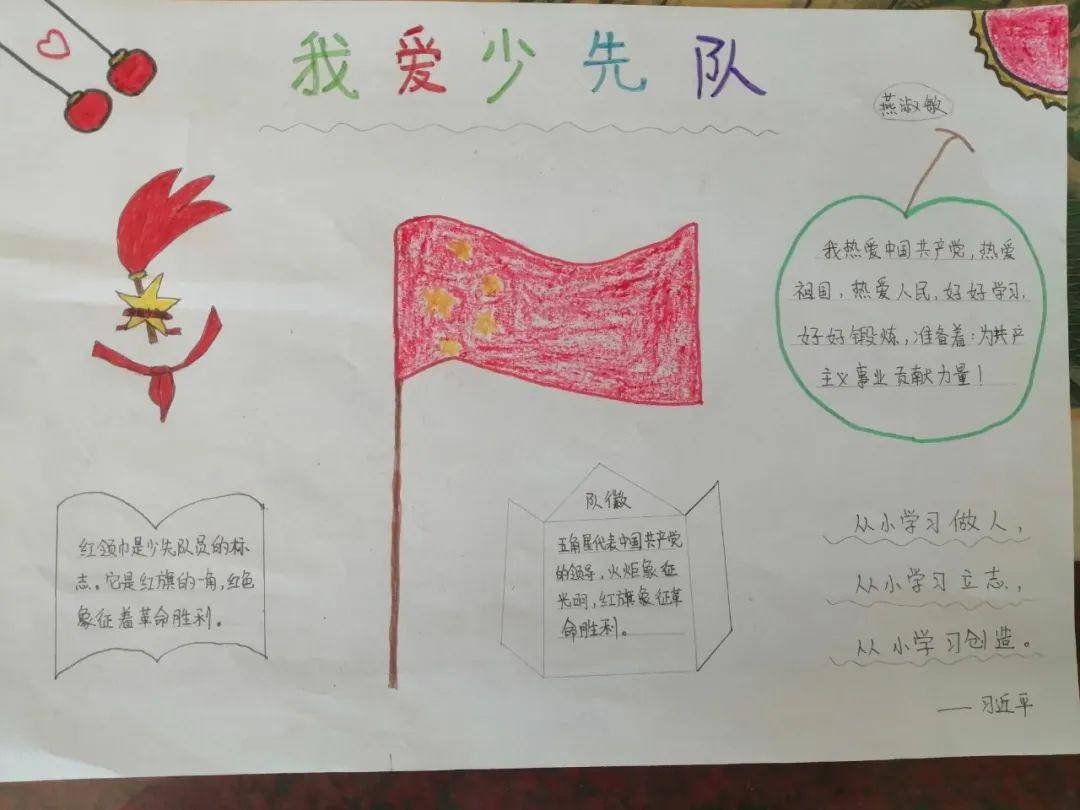 我爱少先队
燕淑敏
我热爱中国共产党,热爱
祖国,热爱人民,好好学习,
好好锻炼,准备着:为共产
主义事业贡献力量!
红领巾是少先队员的标
志。它是红旗的一角,红色
象征着革命胜利。
队徽
五角星代表中国共产党
的领导,火炬象征
光明,红旗象征革
命胜利。
从小学习做人,
从小学习立志,
从小学习创造。
——习近平